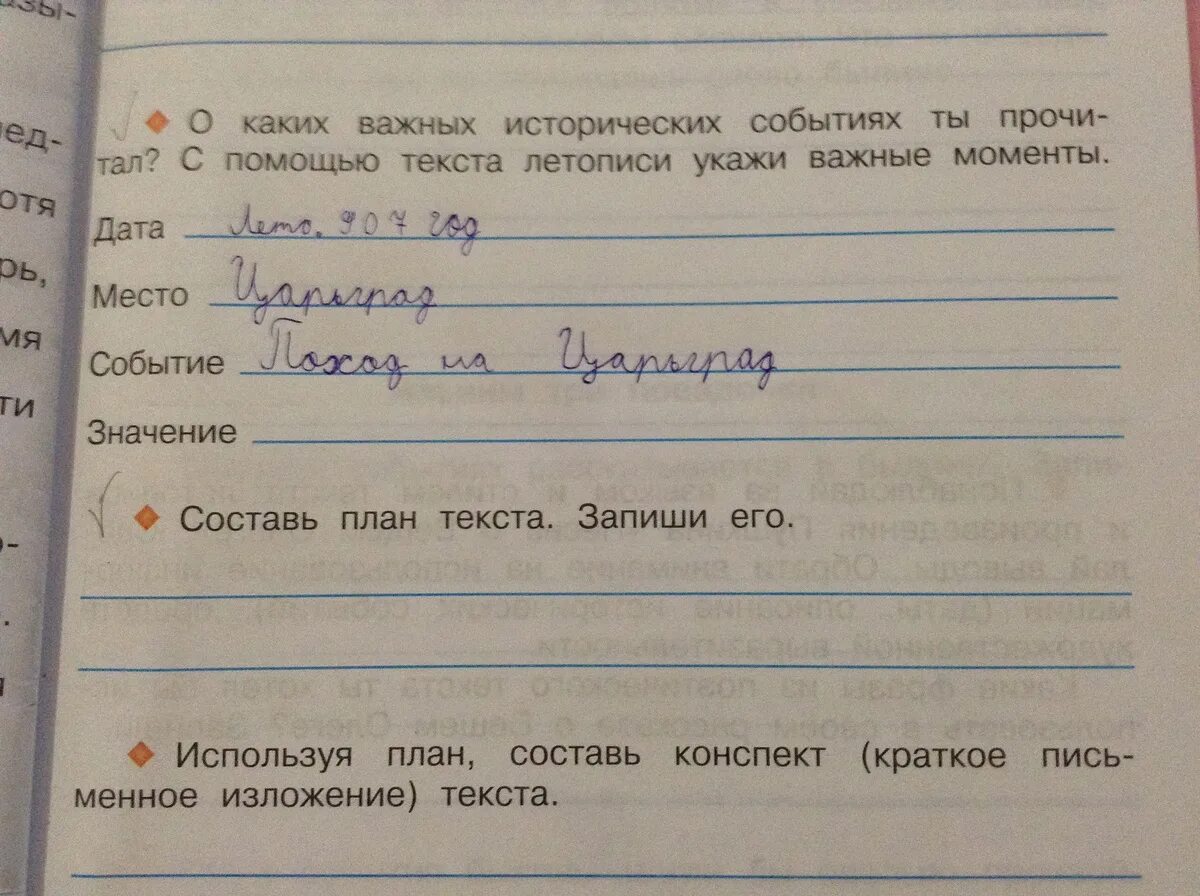 азы-
О каких важных исторических событиях ты прочи-
тал? С помощью текста летописи укажи важные моменты.
Дата Лето. 907 год
Место Царьград
Событие Поход на Царьград
Значение
Составь план текста. Запиши его.
Используя план, составь конспект (краткое пись-
менное изложение) текста.